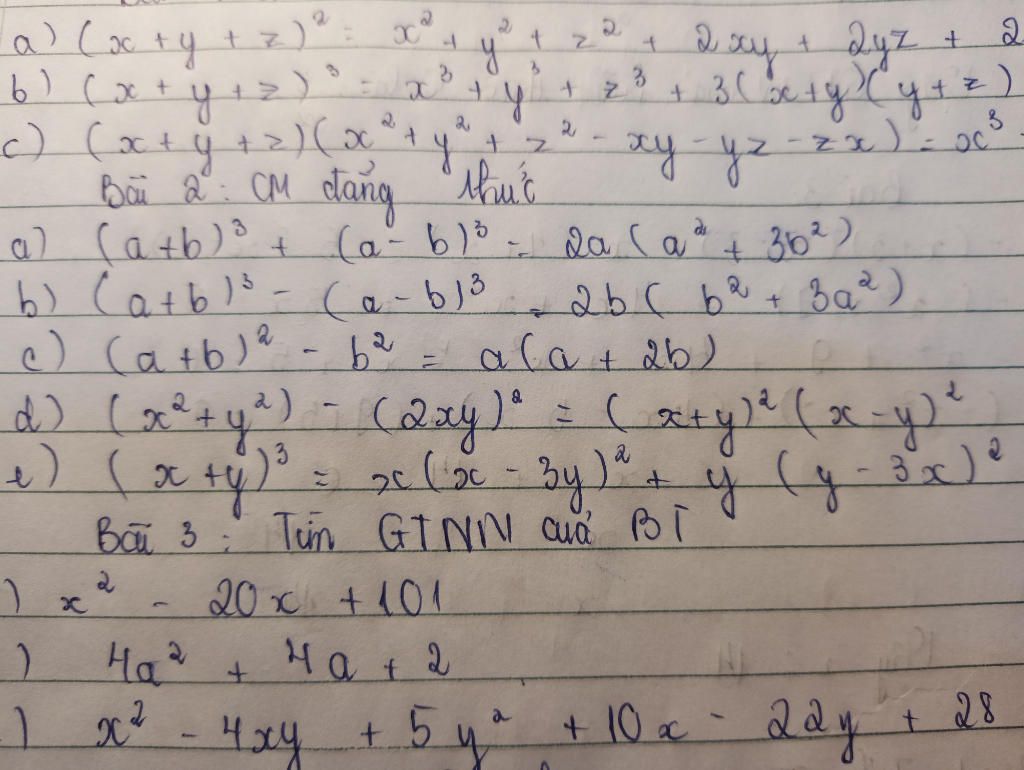 a) (x + y + z)² = x² + y² + z² + 2xy + 2yz + 2
b) (x + y + z)³ = x³ + y³ + z³ + 3(x+y)(y+z)
c) (x + y + z)(x² + y² + z² - xy - yz - zx) = x³
Bài 2 : CM đẳng thức
a) (a+b)³ + (a - b)³ = 2a (a² + 3b²)
b) (a+b)³ - (a - b)³ = 2b ( b² + 3a²)
c) (a+b)² - b² = a(a + 2b)
d) (x²+y²) - (2xy)² = (x+y)² (x-y)²
e) (x+y)³ = x(x - 3y)² + y (y - 3x)²
Bài 3 : Tìm GTNN của BT
) x² - 20x + 101
) 4a² + 4a + 2
) x² - 4xy + 5y² + 10x - 22y + 28